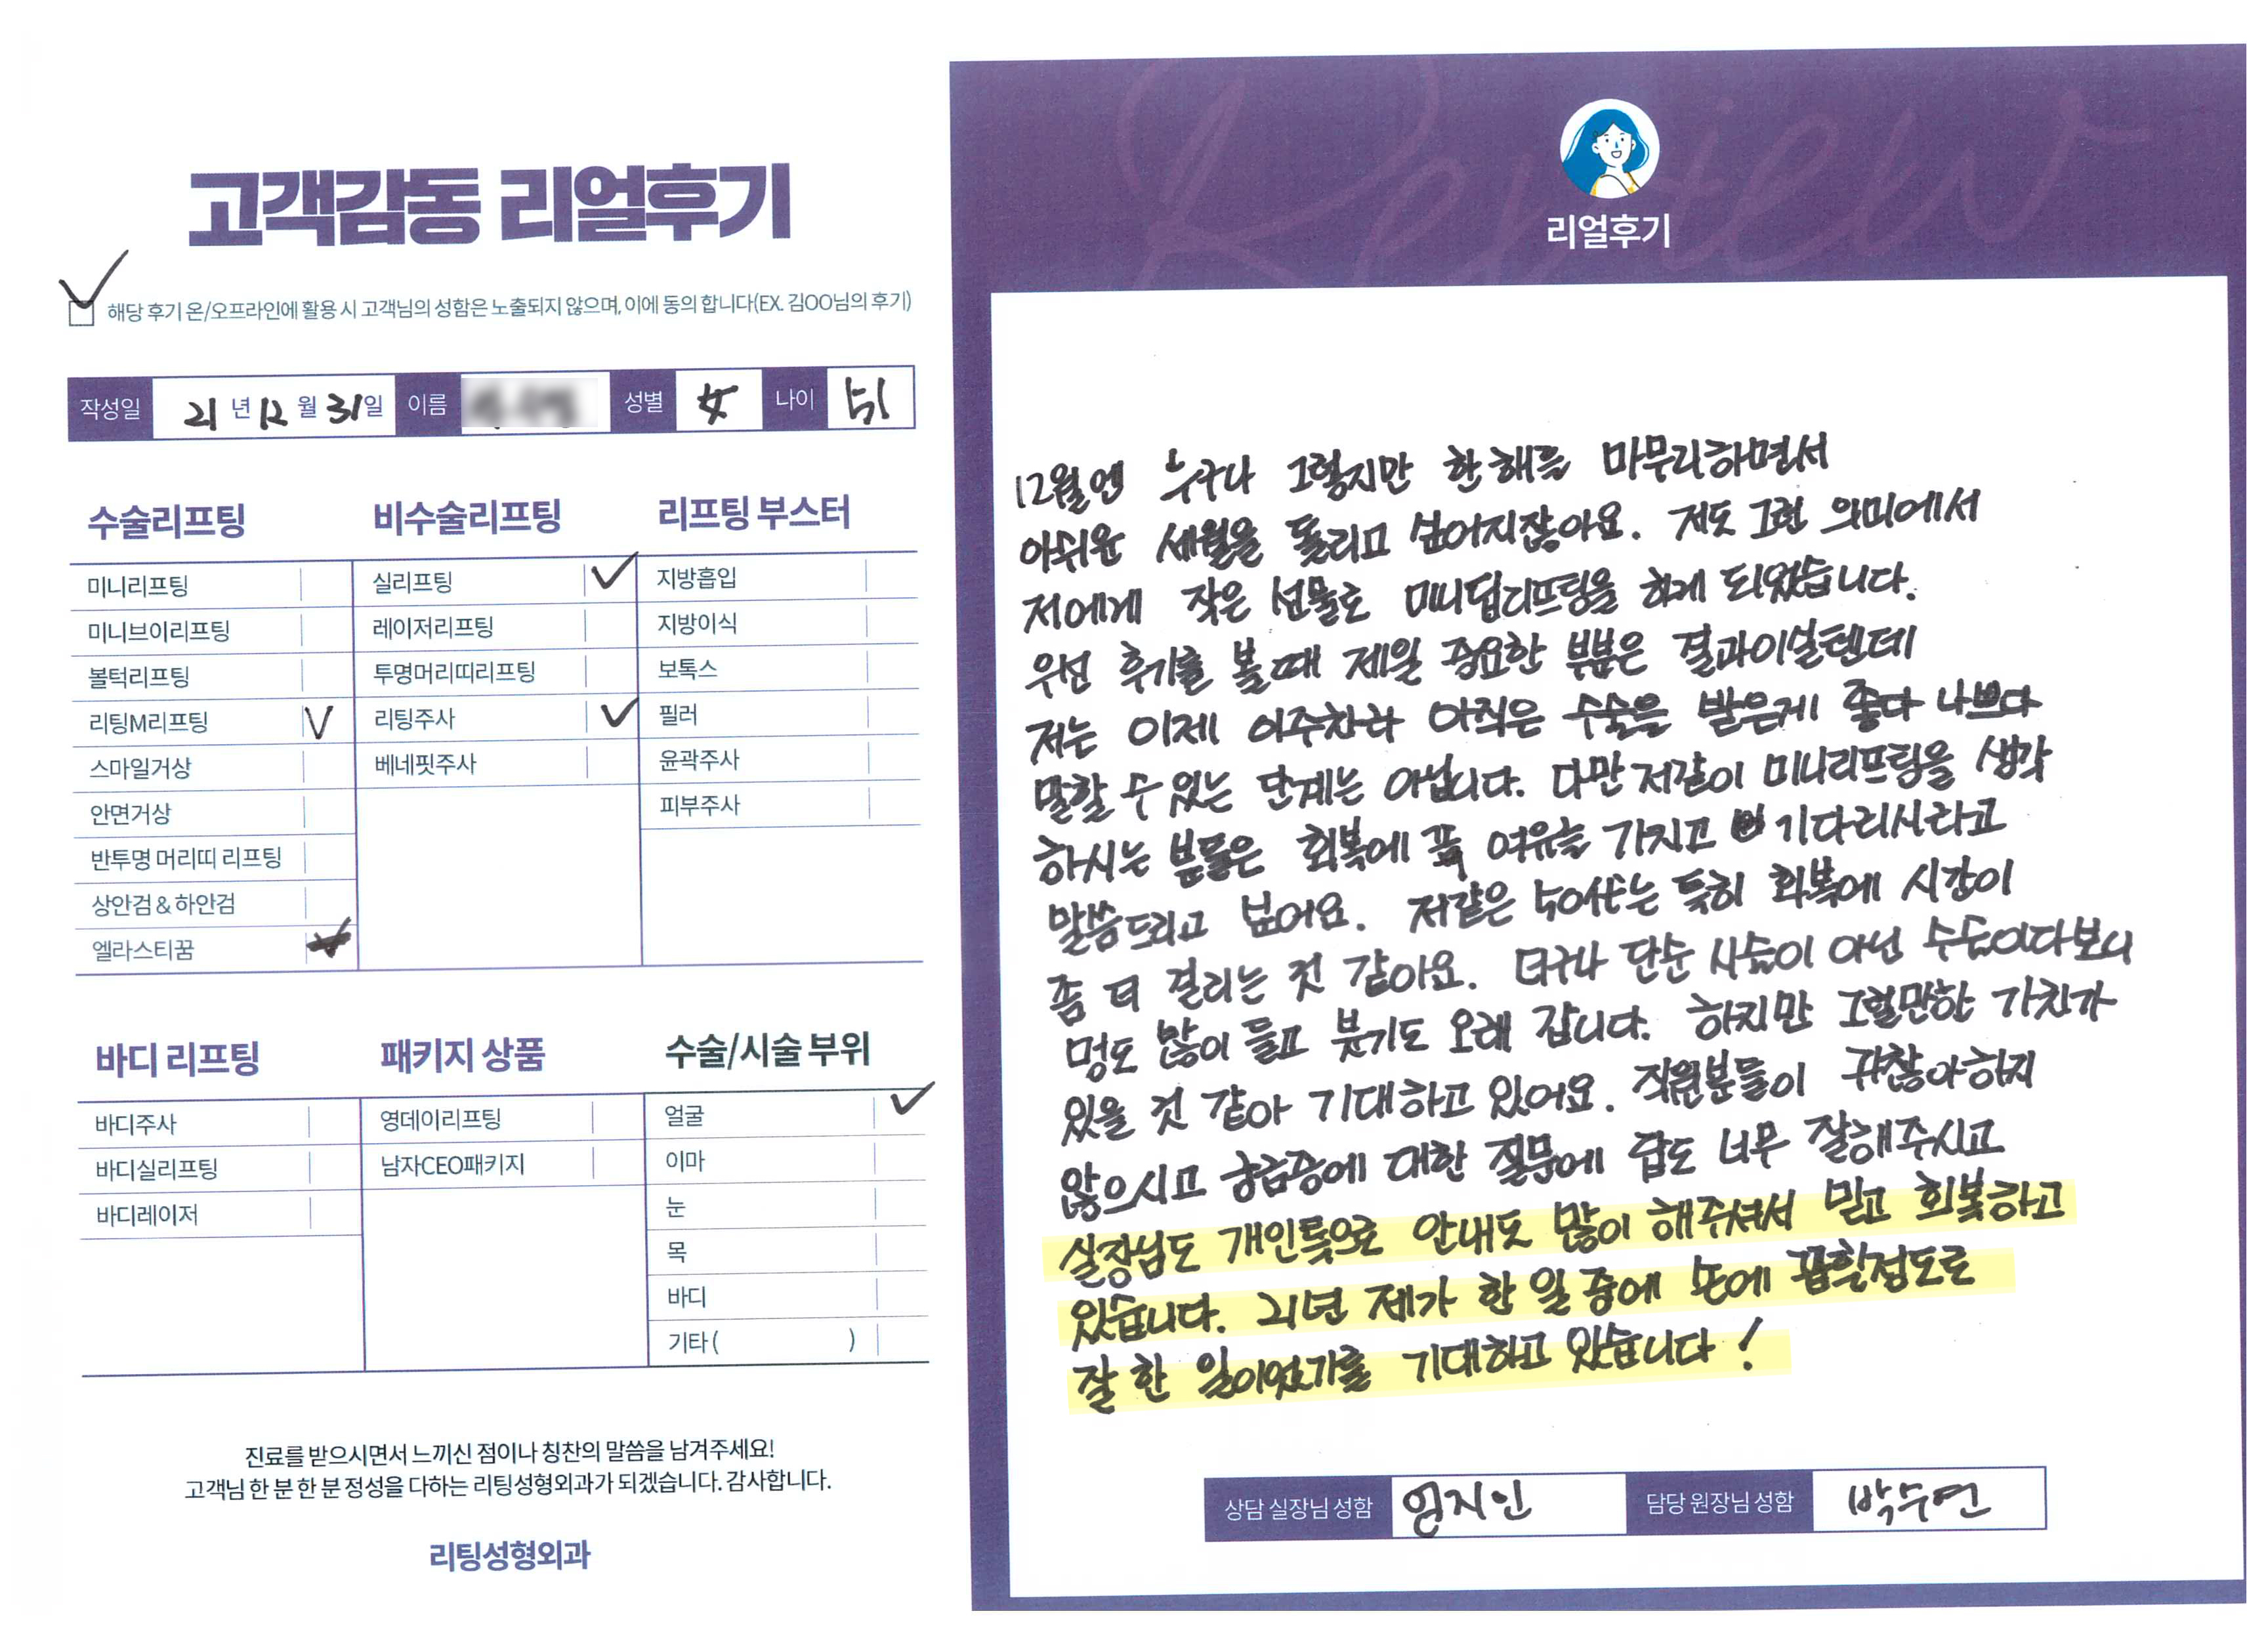 고객감동 리얼후기
해당 후기 온/오프라인에 활용 시 고객님의 성함은 노출되지 않으며, 이에 동의 합니다(EX. 김OO님의 후기)
작성일 21 년 12 월 31 일 이름 성별 女 나이 51
수술리프팅
미니리프팅
미니브이리프팅
볼턱리프팅
리팅M리프팅 V
스마일거상
안면거상
반투명 머리띠 리프팅
상안검 & 하안검
엘라스티꿈
비수술리프팅
실리프팅
레이저리프팅
투명머리띠리프팅
리팅주사
베네핏주사
리프팅 부스터
지방흡입
지방이식
보톡스
필러
윤곽주사
피부주사
바디 리프팅
바디주사
바디실리프팅
바디레이저
패키지 상품
영데이리프팅
남자CEO패키지
수술/시술 부위
얼굴
이마
눈
목
바디
기타 ( )
진료를 받으시면서 느끼신 점이나 칭찬의 말씀을 남겨주세요!
고객님 한 분 한 분 정성을 다하는 리팅성형외과가 되겠습니다. 감사합니다.
리팅성형외과
Review
리얼후기
12월엔 누구나 그렇지만 한해를 마무리하면서
아쉬운 세월을 돌리고 싶어지잖아요. 저도 그런 의미에서
저에게 작은 선물로 미니딥리프팅을 하게 되었습니다.
우선 후기를 볼때 제일 중요한 부분은 결과이실텐데
저는 이제 이주차라 아직은 수술을 받은게 좋다 나쁘다
말할 수 있는 단계는 아닙니다. 다만 저같이 미니리프팅을 생각
하시는 분들은 회복에 꼭 여유를 가지고 기다리시라고
말씀드리고 싶어요. 저같은 50대는 특히 회복에 시간이
좀 더 걸리는 것 같아요. 더구나 단순 시술이 아닌 수술이다보니
멍도 많이 들고 붓기도 오래 갑니다. 하지만 그럴만한 가치가
있을 것 같아 기대하고 있어요. 직원분들이 귀찮아하지
않으시고 궁금증에 대한 질문에 답도 너무 잘해주시고
실장님도 개인톡으로 안내도 많이 해주셔서 믿고 회복하고
있습니다. 21년 제가 한 일 중에 손에 꼽힐정도로
잘 한 일이었기를 기대하고 있습니다!
상담 실장님 성함 엄지인 담당 원장님 성함 박수연